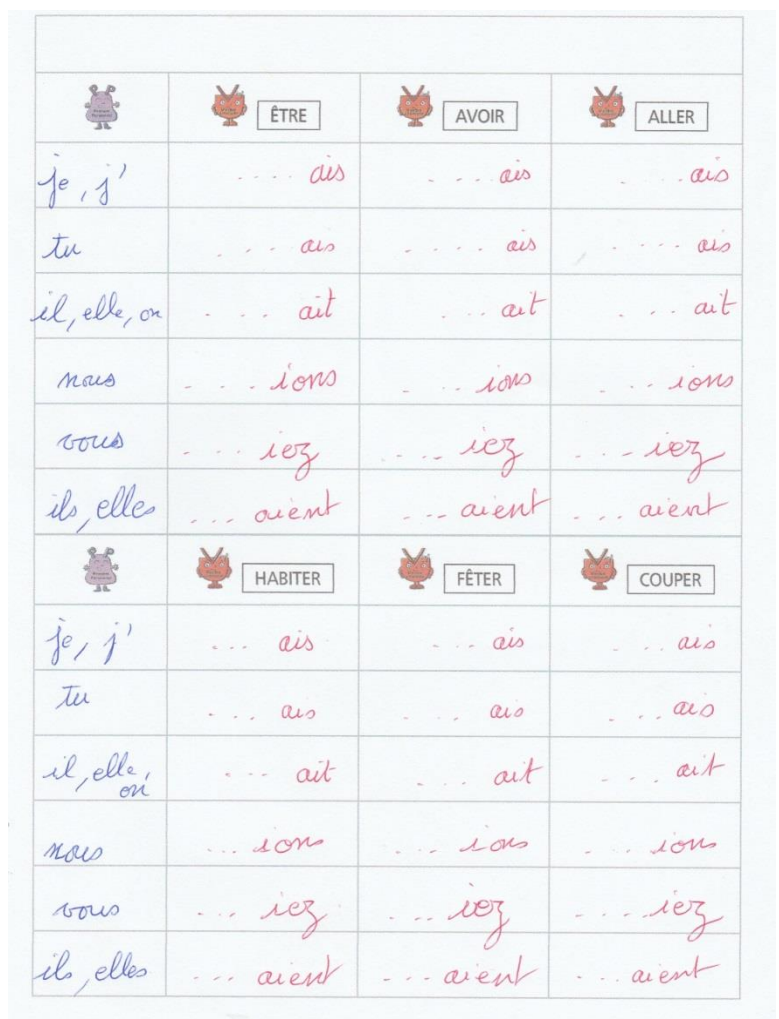 ÊTRE AVOIR ALLER
je, j' .... ais . - - . ais . . . . ais
tu . . - . ais . . . . ais . . . - ais
il, elle, on . . . ait . . . ait . . . ait
nous . . . ions . . . ions . . . ions
vous . . . iez .... iez . . . iez
ils, elles ... aient ... aient ... aient
HABITER FÊTER COUPER
je, j' ... ais . . . ais . . . ais
tu . . . . ais . . . . ais . . . ais
il, elle, on . . . ait . . . . ait . . . . ait
nous ... ions . . . . ions . . . . ions
vous ... iez . . . . iez . . . . iez
ils, elles ... aient ... aient ... aient